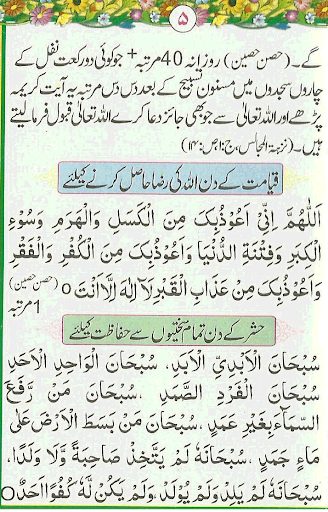 ۵
گے۔ (حصن حصین) روزانہ 40 مرتبہ + جو کوئی دو رکعت نفل کے
چاروں سجدوں میں مسنون تسبیح کے بعد دس دس مرتبہ یہ آیت کریمہ
پڑھے اور اللہ تعالیٰ سے جو بھی جائز دعا کرے اللہ تعالیٰ قبول فرما لیتے
ہیں۔ (نزہۃ المجالس، ج:۱ ص:۱۴)
قیامت کے دن اللہ کی رضا حاصل کرنے کیلئے
اَللّٰهُمَّ اِنِّیْ اَعُوْذُبِكَ مِنَ الْكَسَلِ وَالْهَرَمِ وَسُوْءِ
الْكِبَرِ وَفِتْنَةِ الدُّنْيَا وَاَعُوْذُبِكَ مِنَ الْكُفْرِ وَالْفَقْرِ
وَاَعُوْذُبِكَ مِنْ عَذَابِ الْقَبْرِ لَآ اِلٰهَ اِلَّا اَنْتَ ○ (حصن حصین)
1 مرتبہ
حشر کے دن تمام سختیوں سے حفاظت کیلئے
سُبْحَانَ الْاَبَدِیِّ الْاَبَدِ، سُبْحَانَ الْوَاحِدِ الْاَحَدِ
سُبْحَانَ الْفَرْدِ الصَّمَدِ، سُبْحَانَ مَنْ رَّفَعَ
السَّمَآءَ بِغَيْرِ عَمَدٍ، سُبْحَانَ مَنْ بَسَطَ الْاَرْضَ عَلٰى
مَاءٍ جَمَدٍ، سُبْحَانَهٗ لَمْ يَتَّخِذْ صَاحِبَةً وَّلَا وَلَدًا،
سُبْحَانَهٗ لَمْ يَلِدْ وَلَمْ يُوْلَدْ، وَلَمْ يَكُنْ لَّهٗ كُفُوًا اَحَدٌ ○